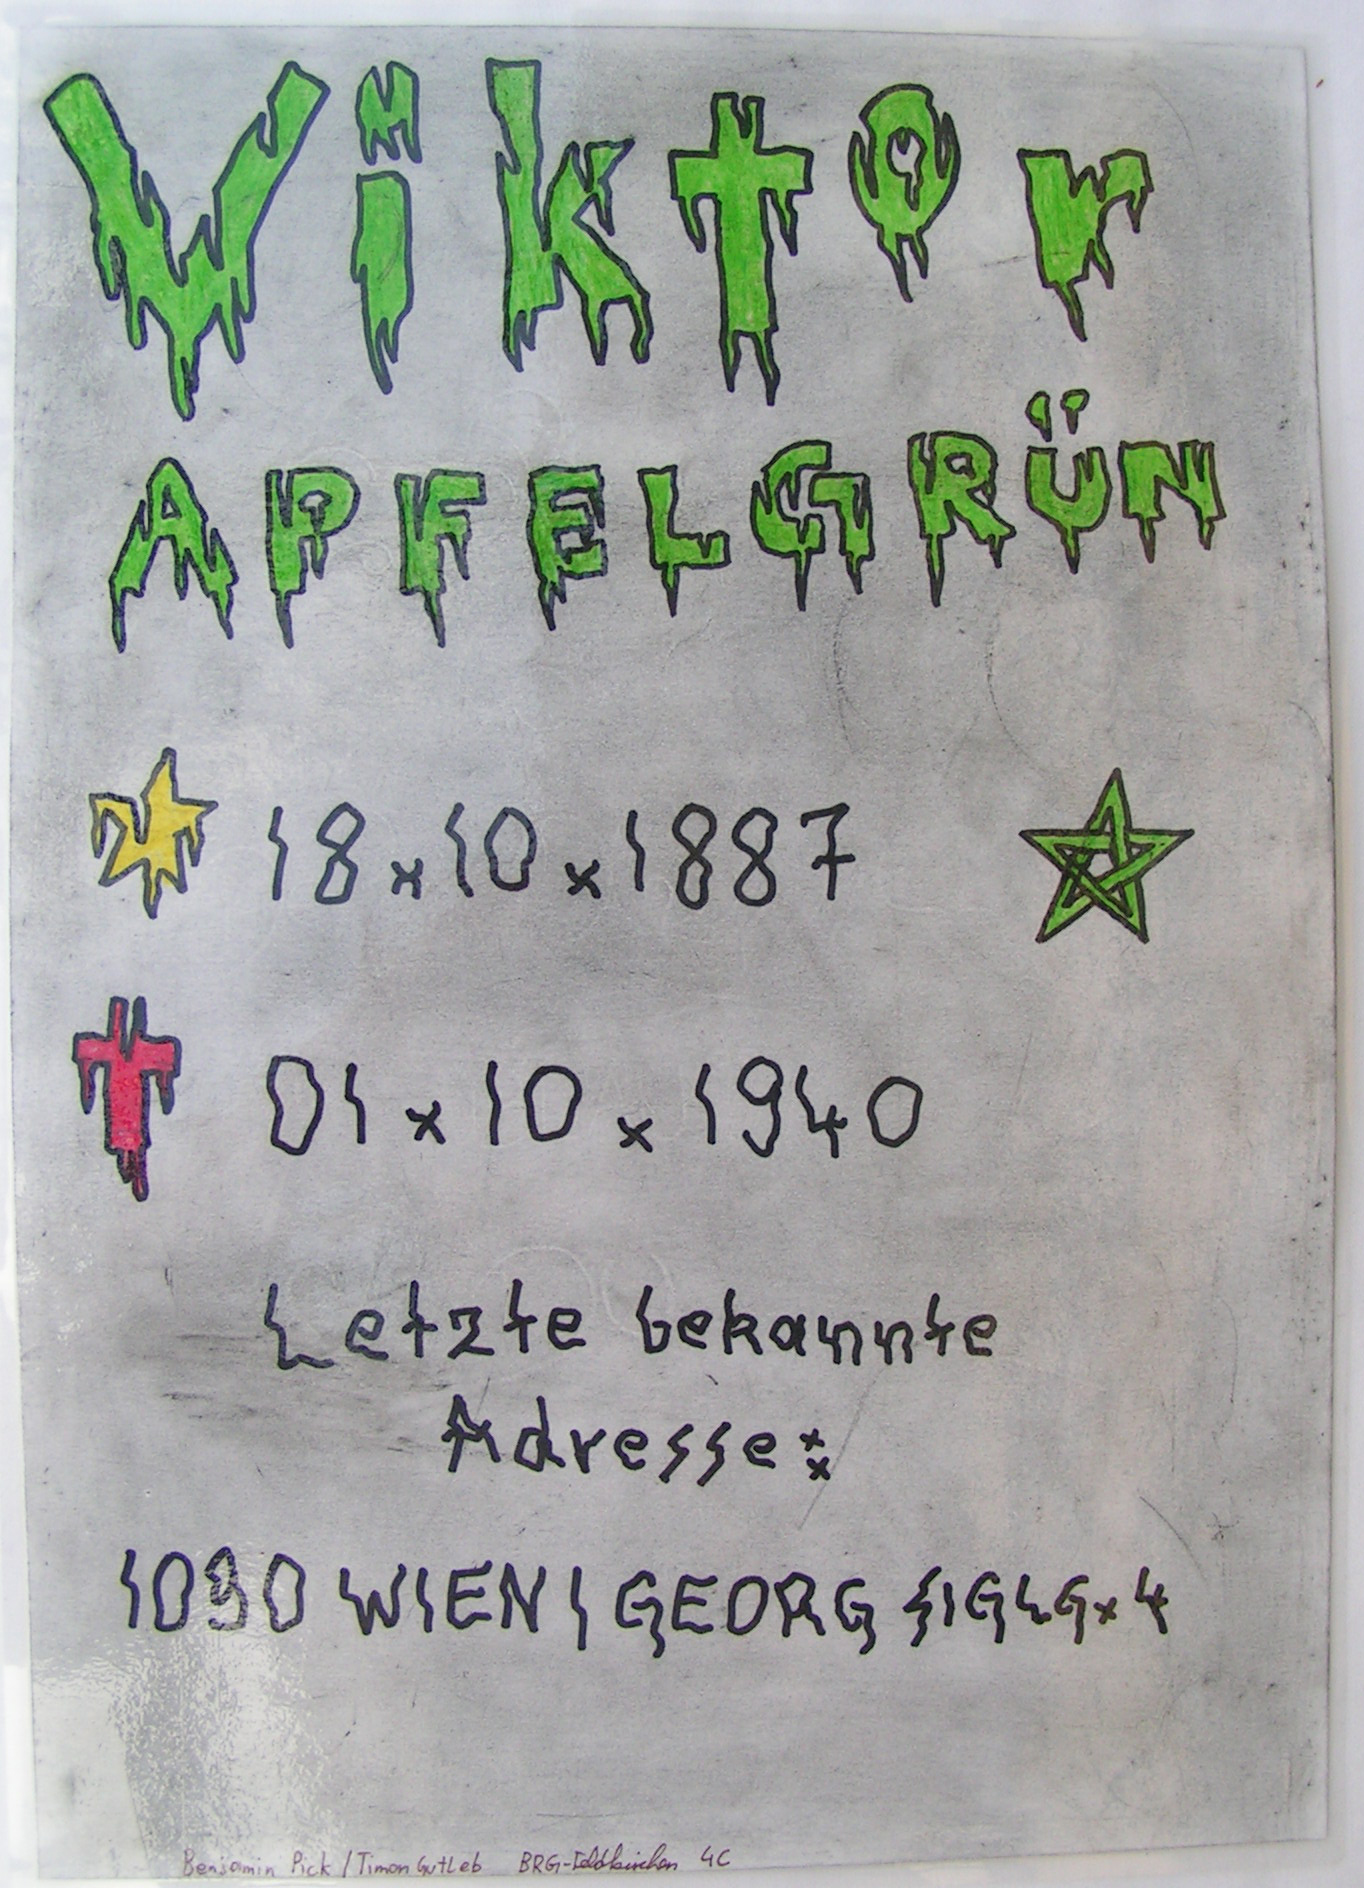 Viktor
APFELGRÜN
18.10.1887
01.10.1940
Letzte bekannte
Adresse:
1090 WIEN | GEORG SIGLG. 4
Benjamin Pick / Timon Gutleb BRG-Feldkirchen 4C